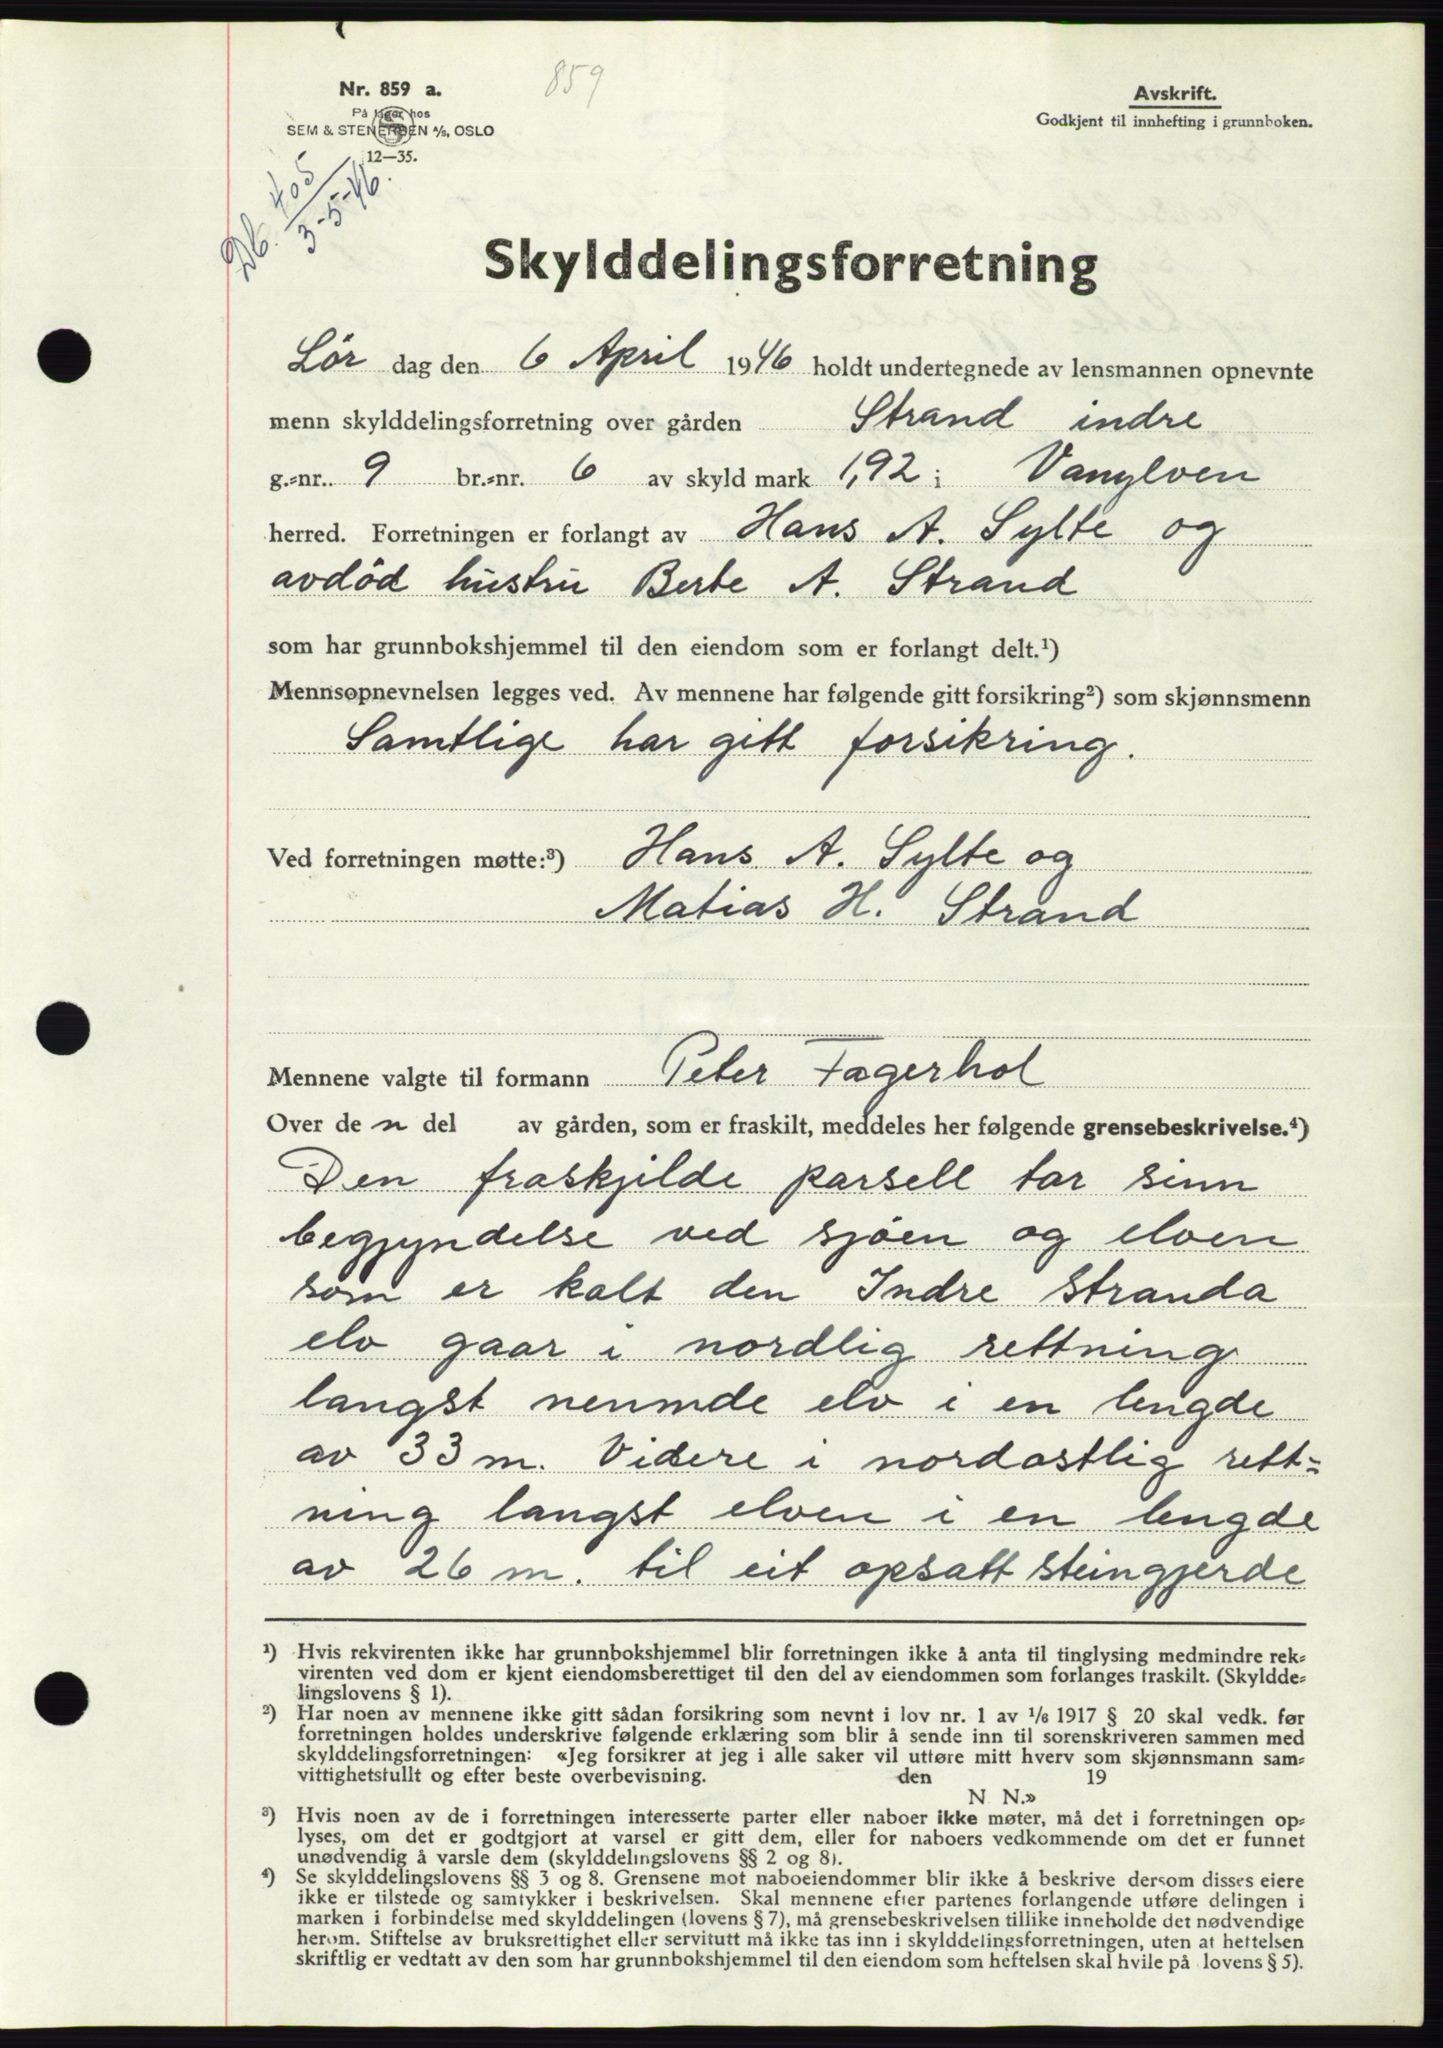 Nr. 859 a.
859
Avskrift.
På lager hos
SEM & STENERSEN A/S, OSLO
Godkjent til innhefting i grunnboken.
12—35.
Db. 405
3-5-46.
Skylddelingsforretning
Lör dag den 6 April 1946 holdt undertegnede av lensmannen opnevnte
menn skylddelingsforretning over gården Strand indre
g.=nr. 9 br.=nr. 6 av skyld mark 1,92 i Vanylven
herred. Forretningen er forlangt av Hans A. Sylte og
avdöd hustru Berte A. Strand
som har grunnbokshjemmel til den eiendom som er forlangt delt.¹)
Mennsopnevnelsen legges ved. Av mennene har følgende gitt forsikring²) som skjønnsmenn
Samtlige har gitt forsikring.
Ved forretningen møtte:³) Hans A. Sylte og
Matias H. Strand
Mennene valgte til formann Peter Fagerhol
Over de n del av gården, som er fraskilt, meddeles her følgende grensebeskrivelse.⁴)
Den fraskjilde parsell tar sinn
begjyndelse ved sjöen og elven
som er kalt den Indre Stranda
elv gaar i nordlig rettning
langst nenmde elv i en lengde
av 33 m. Videre i nordostlig rett=
ning langst elven i en lengde
av 26 m. til eit opsatt steingjerde
¹) Hvis rekvirenten ikke har grunnbokshjemmel blir forretningen ikke å anta til tinglysing medmindre rek=
virenten ved dom er kjent eiendomsberettiget til den del av eiendommen som forlanges fraskilt. (Skyldde=
lingslovens § 1).
²) Har noen av mennene ikke gitt sådan forsikring som nevnt i lov nr. 1 av 1/6 1917 § 20 skal vedk. før
forretningen holdes underskrive følgende erklæring som blir å sende inn til sorenskriveren sammen med
skylddelingsforretningen: «Jeg forsikrer at jeg i alle saker vil utføre mitt hverv som skjønnsmann sam=
vittighetsfullt og efter beste overbevisning. den 19
N. N.»
³) Hvis noen av de i forretningen interesserte parter eller naboer ikke møter, må det i forretningen op=
lyses, om det er godtgjort at varsel er gitt dem, eller for naboers vedkommende om det er funnet
unødvendig å varsle dem (skylddelingslovens §§ 2 og 8).
⁴) Se skylddelingslovens §§ 3 og 8. Grensene mot naboeiendommer blir ikke å beskrive dersom disses eiere
ikke er tilstede og samtykker i beskrivelsen. Skal mennene efter partenes forlangende utføre delingen i
marken i forbindelse med skylddelingen (lovens § 7), må grensebeskrivelsen tillike inneholde det nødvendige
herom. Stiftelse av bruksrettighet eller servitutt må ikke tas inn i skylddelingsforretningen, uten at heftelsen
skriftlig er vedtatt av den som har grunnbokshjemmel til den eiendom som heftelsen skal hvile på lovens § 5).